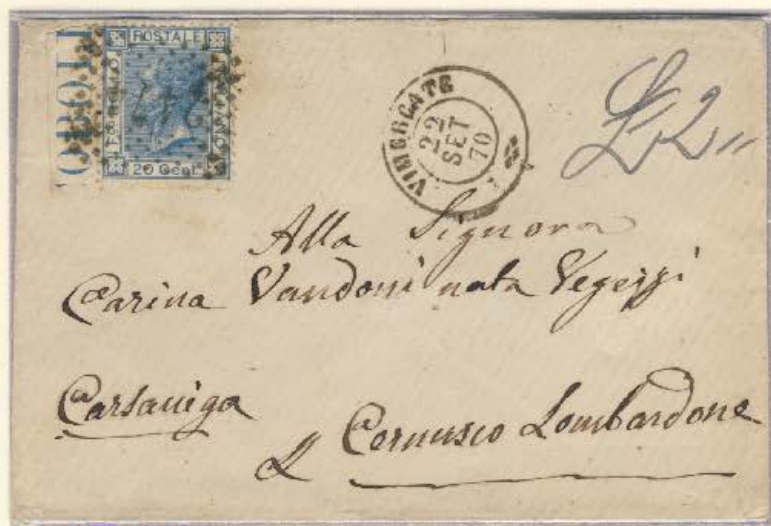 FRANCOBOLLO
POSTALE
ITALIANO
20 Cent
VIMERCATE
22
SET
70
£2"
Alla Signora
Carina Vandoni nata Vegezzi
Carsaniga
Cernusco Lombardone